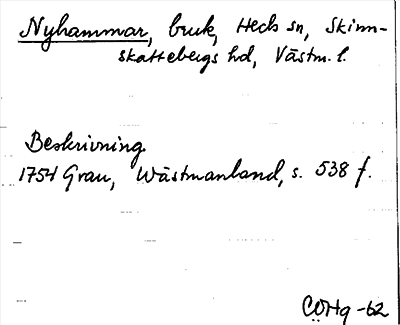 Nyhammar, bruk, Heds sn, Skinn-
skattebergs hd, Västm. l.
Beskrivning
1754 Grau, Wästmanland, s. 538 f.
CÖHg -62